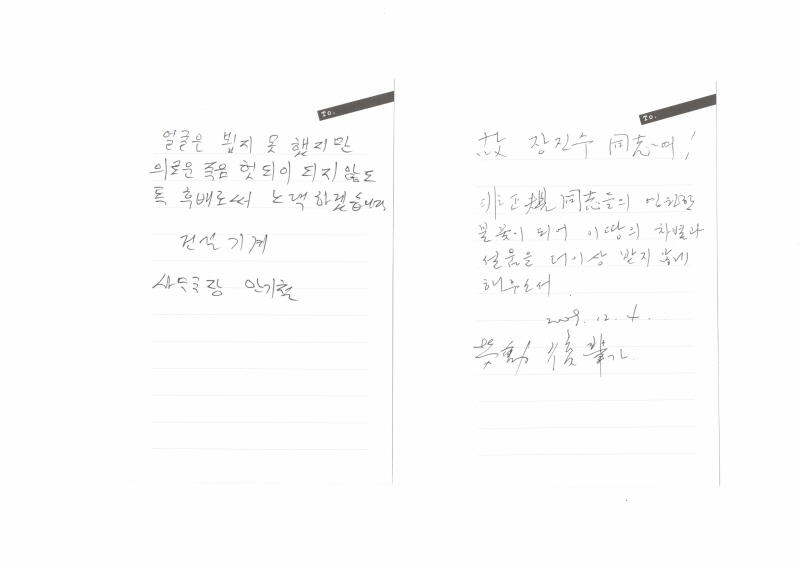 To.
얼굴은 뵙지 못 했지만
의로운 죽음 헛되이 되지않도
록 후배로써 노력하겠습니다
건설기계
사무국장 안기철
To.
故 장진수 同志여!
非正規 同志들의 영원한
불꽃이 되어 이땅의 차별과
설움을 더이상 받지 않게
해주소서.
2009. 12. 4.
労動 後輩가